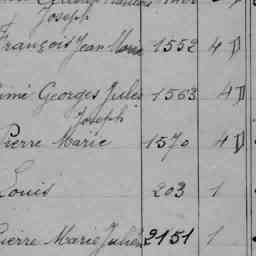 Joseph
François Jean Marie 1552 4 D
Aimé Georges Jules 1563 4 D
Joseph
Pierre Marie 1570 4 D
Louis 203 1
Pierre Marie Julien 2151 1